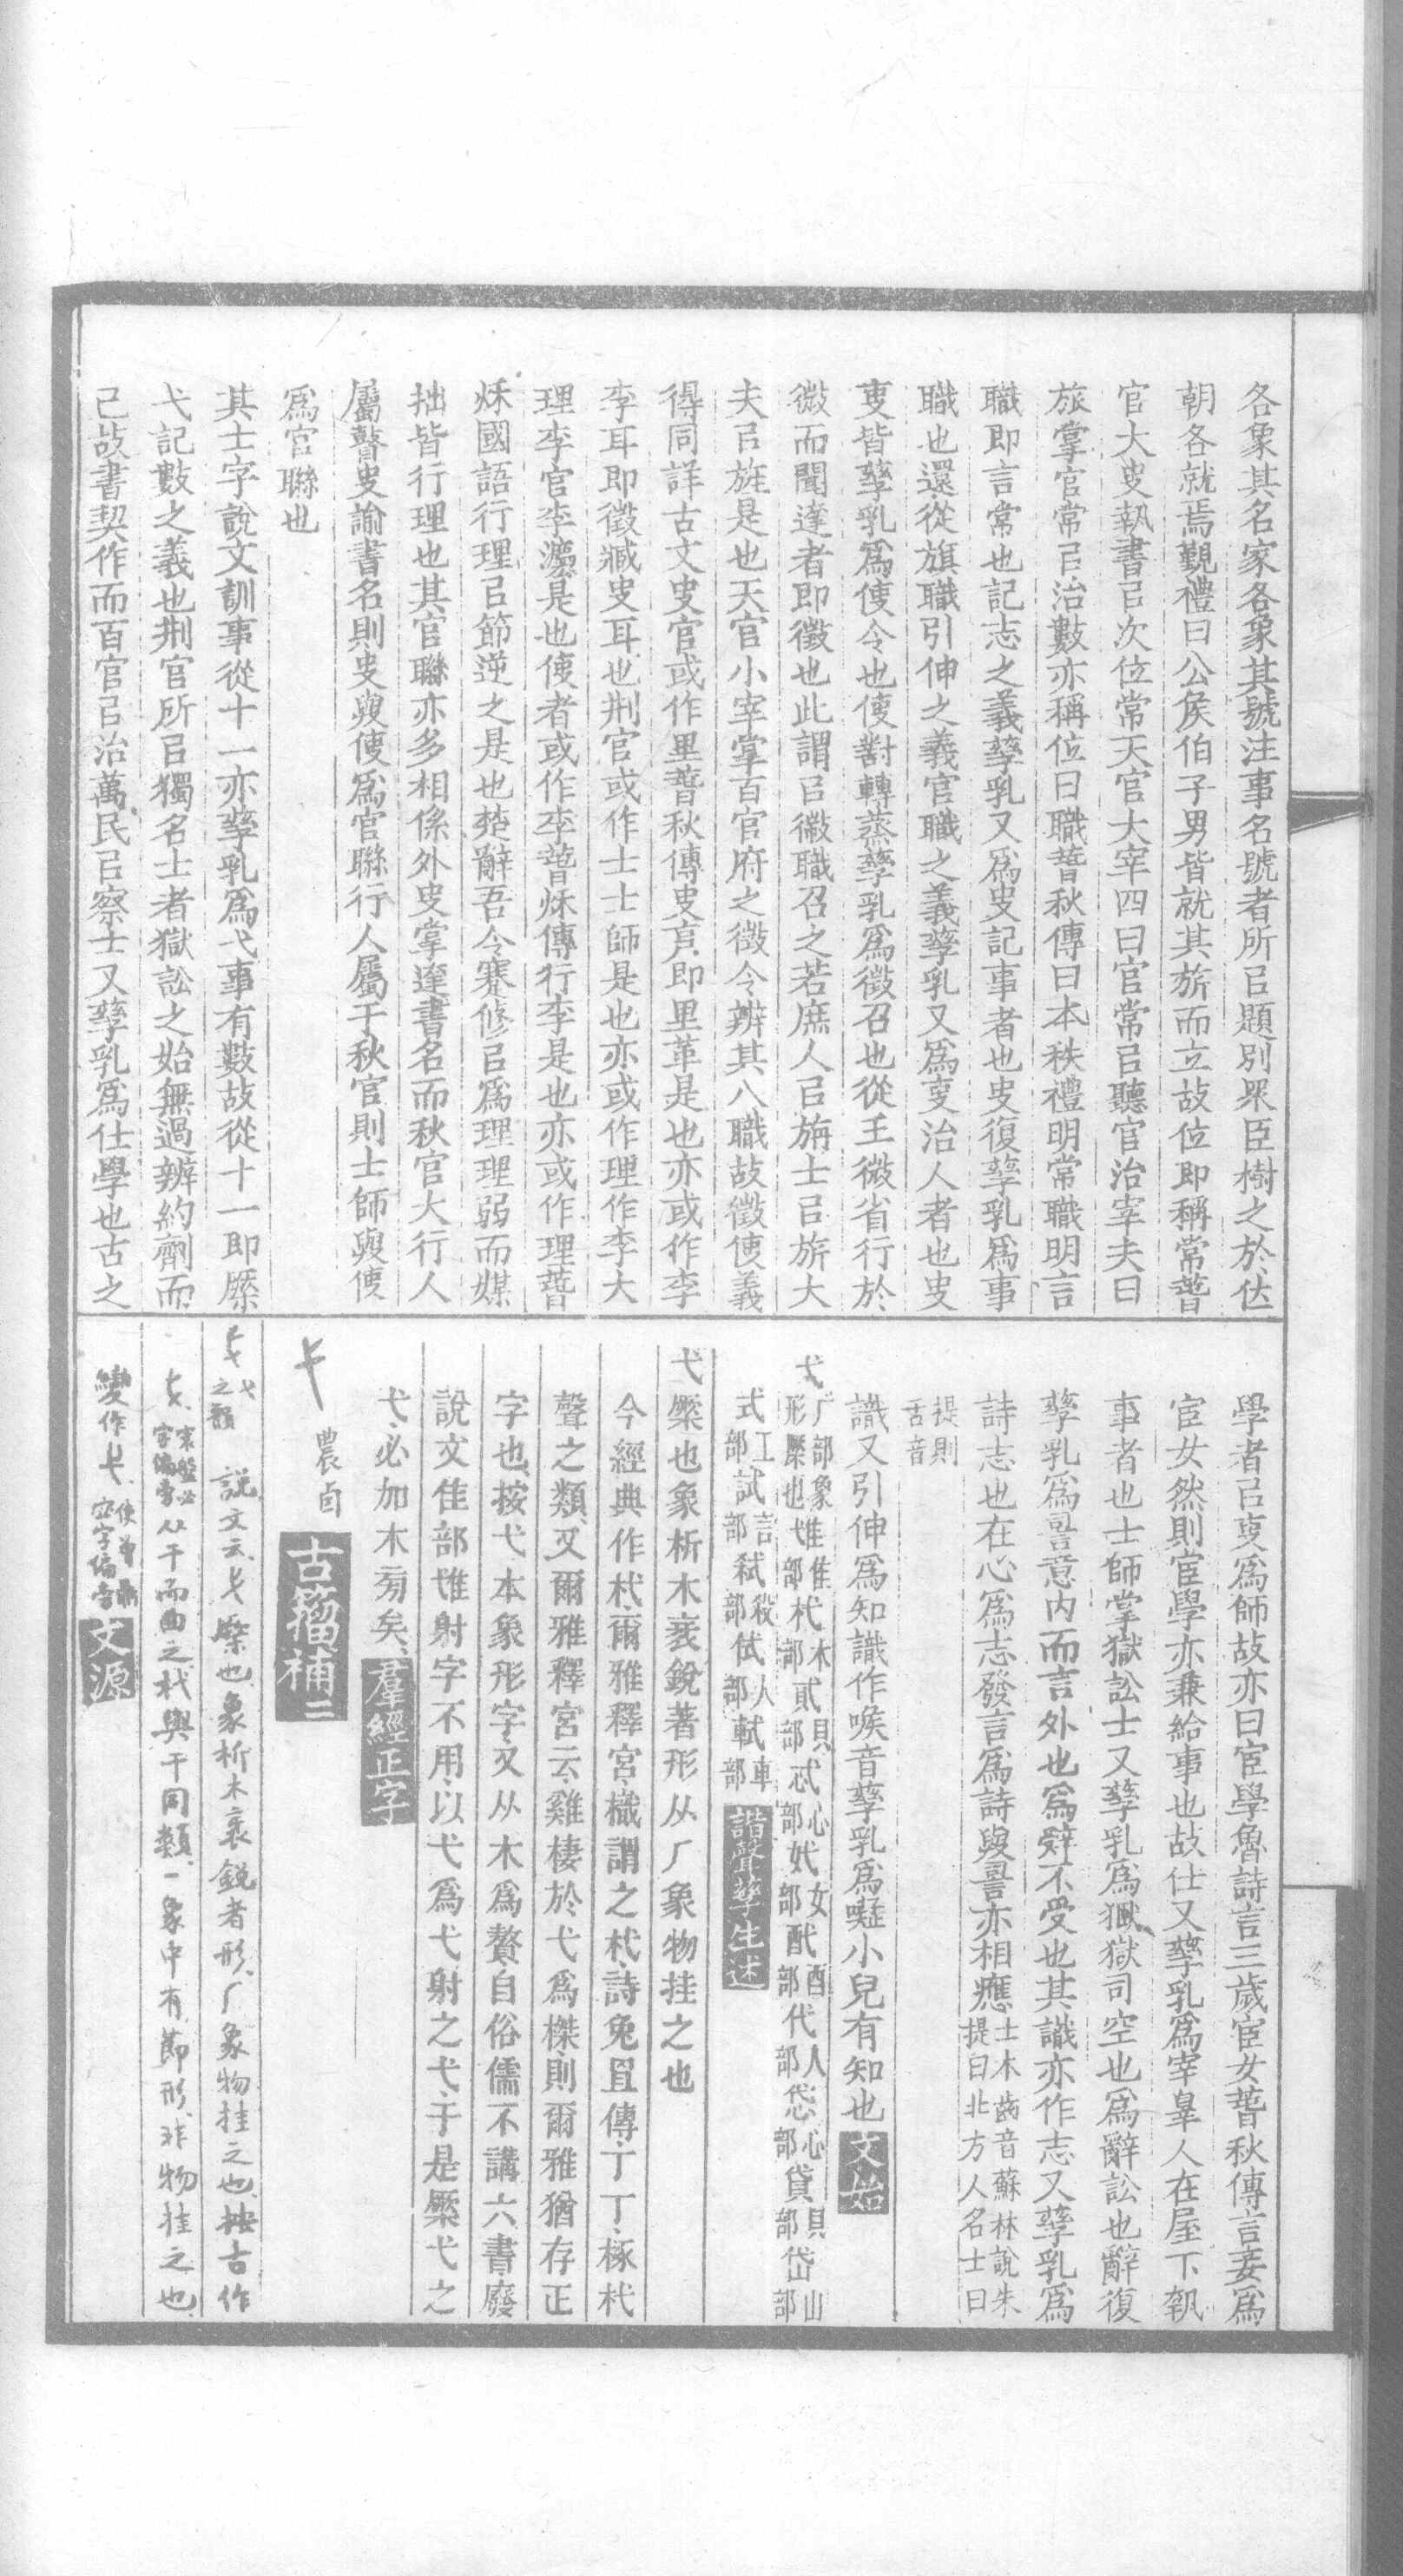 各象其名家各象其號注事名號者所㠯題別眾臣樹之於佐
朝各就焉覲禮曰公矦伯子男皆就其旂而立故位即稱常萅
官大叓執書㠯次位常天官大宰四曰官常㠯聽官治宰夫曰
旅掌官常㠯治數亦稱位曰職萅秋傳曰本秩禮明常職明言
職即言常也記志之義孳乳又爲叓記事者也叓復孳乳爲事
職也還從旗職引伸之義官職之義孳乳又爲吏治人者也叓
吏皆孳乳爲使令也使對轉蒸孳乳爲徵召也從王微省行於
微而聞達者即徵也此謂㠯徽職召之若庶人㠯旃士㠯旂大
夫㠯旌是也天官小宰掌百官府之徵令辨其八職故徵使義
得同詳古文叓官或作里萅秋傳叓克即里革是也亦或作李
李耳即徵臧叓耳也荆官或作士士師是也亦或作理作李大
理李官李灋是也使者或作李萅秌傳行李是也亦或作理萅
秌國語行理㠯節逆之是也楚辭吾令蹇修㠯爲理理弱而媒
拙皆行理也其官聯亦多相係外叓掌達書名而秋官大行人
屬瞽叓諭書名則叓與使爲官聯行人屬于秋官則士師與使
爲官聯也
其士字說文訓事從十一亦孳乳爲弋事有數故從十一即㮞
弋記數之義也荆官所㠯獨名士者獄訟之始無過辨約劑而
已故書契作而百官㠯治萬民㠯察士又孳乳爲仕學也古之
學者㠯吏爲師故亦曰宦學魯詩言三歲宦女萅秋傳言妾爲
宦女然則宦學亦兼給事也故仕又孳乳爲宰辠人在屋下執
事者也士師掌獄訟士又孳乳爲㺇獄司空也爲辭訟也辭復
孳乳爲䛐意内而言外也爲辤不受也其識亦作志又孳乳爲
詩志也在心爲志發言爲詩與䛐亦相應士木齒音蘇林說朱
提曰北方人名士曰
提則
舌音
識又引伸爲知識作喉音孳乳爲嶷小兒有知也 文始
弋厂部象形㮞也 隿隹部 杙木部 貣貝部 忒心部 妷女部 酖酉部 代人部 怹心部 貸貝部 岱山部
式工部 試言部 弒殺部 侙人部 軾車部 諧聲孳生述
弋㮞也象析木衺銳著形从厂象物挂之也
今經典作杙爾雅釋宮樴謂之杙詩兔罝傳丁丁椓杙
聲之類又爾雅釋宮云雞棲於弋爲榤則爾雅猶存正
字也按弋本象形字又从木爲贅自俗儒不講六書廢
說文隹部隿射字不用以弋爲弋射之弋于是㮞弋之
弋必加木㫄矣 羣經正字
弋 農卣 古籀補二
弋 弋之類 說文云弋㮞也象析木衺銳者形厂象物挂之也按古作
从干而曲之杙與干同類一象中有節形非物挂之也
變作 文源